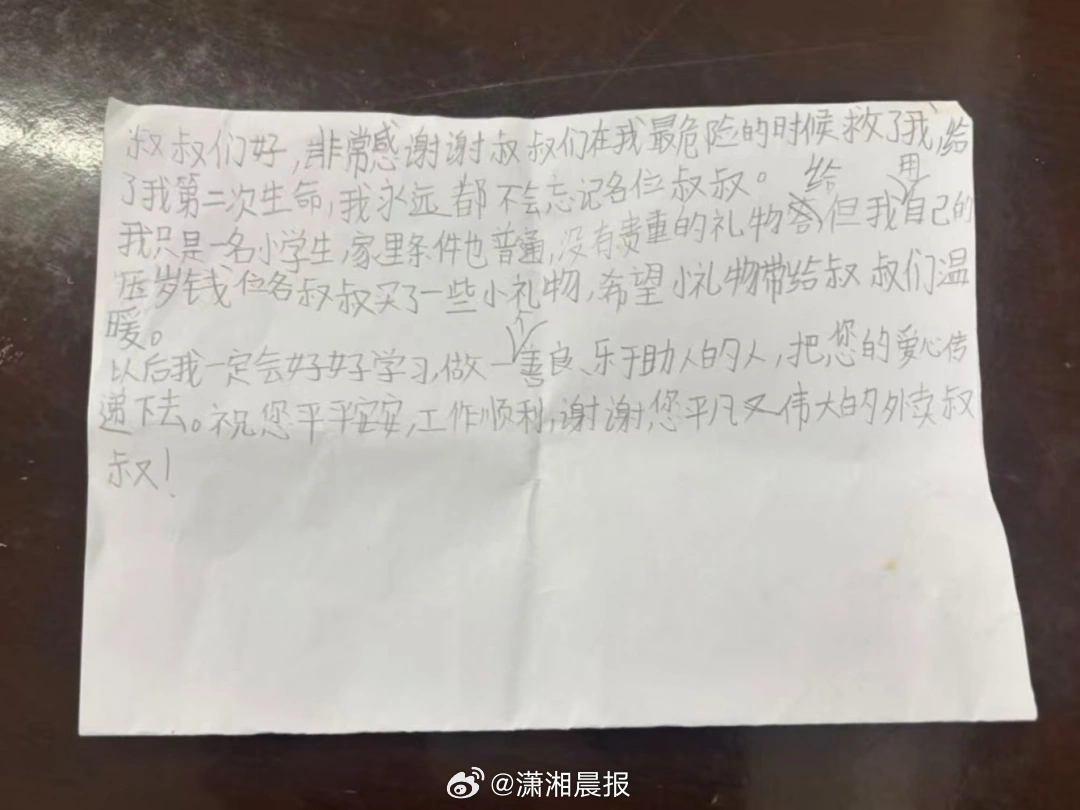 叔叔们好，非常感谢谢叔叔们在我最危险的时候救了我，给
了我第二次生命，我永远都不会忘记各位叔叔。
我只是一名小学生，家里条件也普通，没有贵重的礼物给，但我用自己的
压岁钱位各叔叔买了一些小礼物，希望小礼物带给叔叔们温
暖。
以后我一定会好好学习，做一个善良、乐于助人的人，把您的爱心传
递下去。祝您平平安安，工作顺利，谢谢您平凡又伟大的外卖叔
叔！
@潇湘晨报